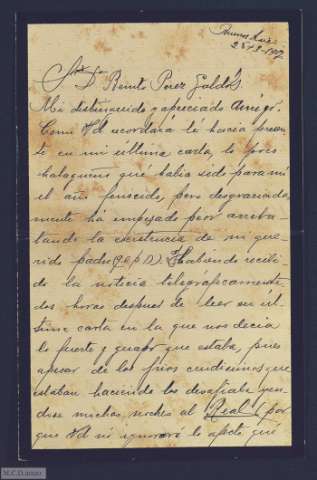 Buenos Aires
Sr. D. Benito Perez Galdós.
Mi distinguido y apreciado Amigo:
Como Vd. recordará le hacia presen
te en mi última carta, lo poco
halagueño que habia sido para mi
el año fenecido, pero desgraciada
mente há empezado peor arreba
tando la existencia de mi que
rido padre (q.e.p.d). Habiendo recibi
do la noticia telegráficamente
dos horas despues de leer su úl
tima carta en la que nos decia
lo fuerte y guapo que estaba, pues
apesar de los frios crudisimos que
estaban haciendo los desafiaba yen
dose muchas noches al Real (por
que Vd. no ignorará lo afecto que
M.C.D. 2020